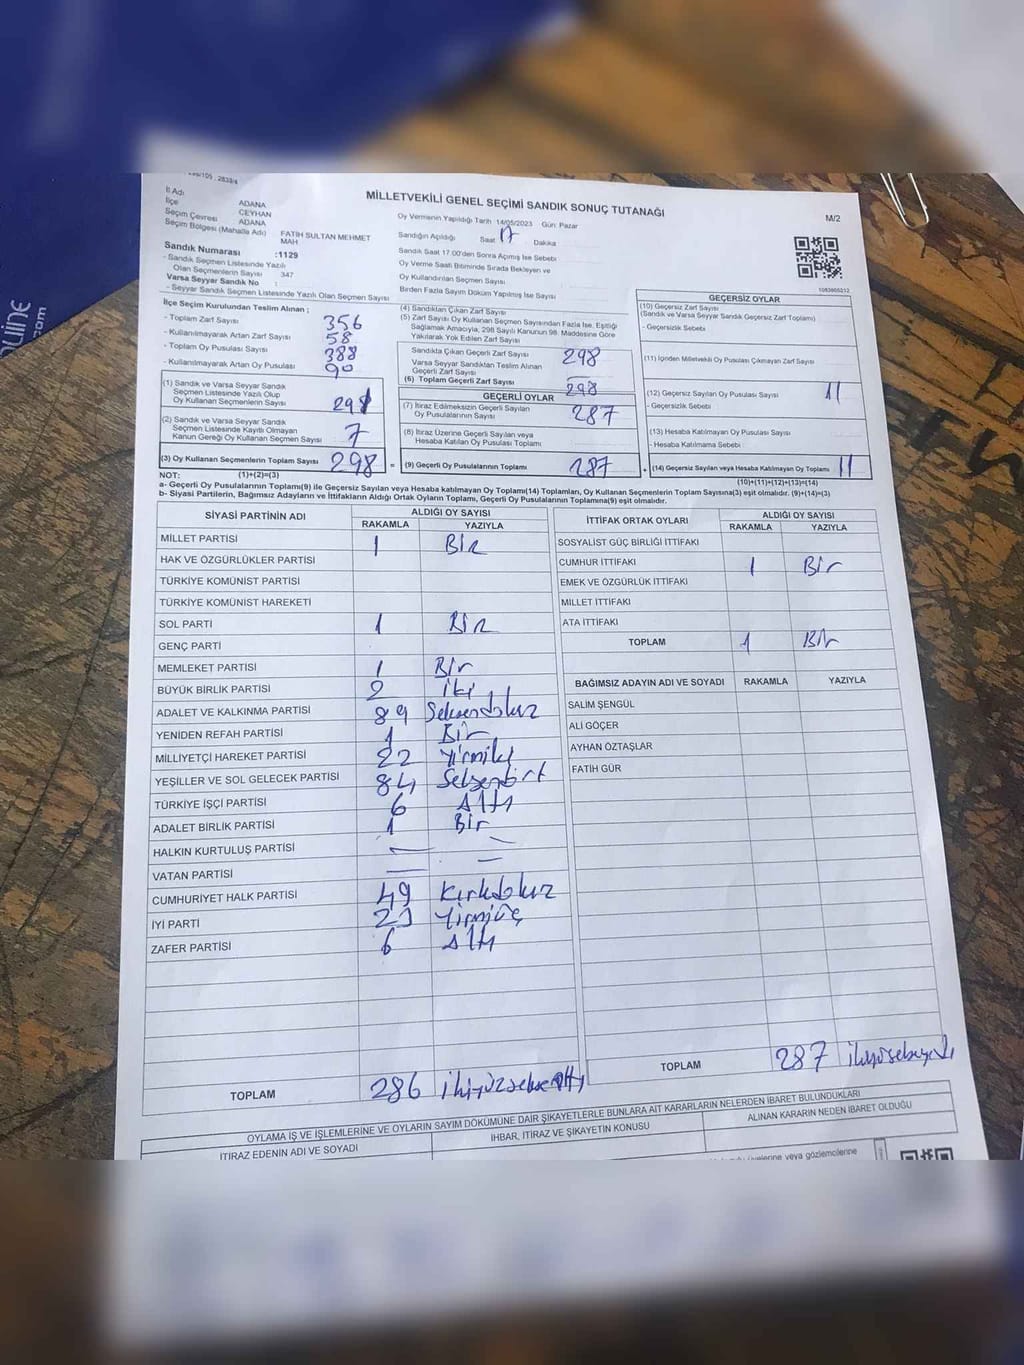 MİLLETVEKİLİ GENEL SEÇİMİ SANDIK SONUÇ TUTANAĞI
M/2
İl Adı ADANA
İlçe CEYHAN
Seçim Çevresi ADANA
Seçim Bölgesi (Mahalle Adı) FATİH SULTAN MEHMET MAH
Sandık Numarası :1129
- Sandık Seçmen Listesinde Yazılı
Olan Seçmenlerin Sayısı 347
Varsa Seyyar Sandık No :
- Seyyar Sandık Seçmen Listesinde Yazılı Olan Seçmen Sayısı
Oy Vermenin Yapıldığı Tarih 14/05/2023 Gün: Pazar
Sandığın Açıldığı Saat 17 Dakika
Sandık Saat 17.00'den Sonra Açılmış İse Sebebi
Oy Verme Saati Bitiminde Sırada Bekleyen ve
Oy Kullandırılan Seçmen Sayısı
Birden Fazla Sayım Döküm Yapılmış İse Sayısı
1093905212
İlçe Seçim Kurulundan Teslim Alınan ;
- Toplam Zarf Sayısı 356
- Kullanılmayarak Artan Zarf Sayısı 58
- Toplam Oy Pusulası Sayısı 388
- Kullanılmayarak Artan Oy Pusulası 90
(1) Sandık ve Varsa Seyyar Sandık
Seçmen Listesinde Yazılı Olup
Oy Kullanan Seçmenlerin Sayısı 291
(2) Sandık ve Varsa Seyyar Sandık
Seçmen Listesinde Kayıtlı Olmayan
Kanun Gereği Oy Kullanan Seçmen Sayısı 7
(3) Oy Kullanan Seçmenlerin Toplam Sayısı 298 =
(4) Sandıktan Çıkan Zarf Sayısı
(5) Zarf Sayısı Oy Kullanan Seçmen Sayısından Fazla İse, Eşitliği
Sağlamak Amacıyla, 298 Sayılı Kanunun 98. Maddesine Göre
Yakılarak Yok Edilen Zarf Sayısı
Sandıkta Çıkan Geçerli Zarf Sayısı 298
Varsa Seyyar Sandıktan Teslim Alınan
Geçerli Zarf Sayısı
(6) Toplam Geçerli Zarf Sayısı 298
GEÇERLİ OYLAR
(7) İtiraz Edilmeksizin Geçerli Sayılan
Oy Pusulalarının Sayısı 287
(8) İtiraz Üzerine Geçerli Sayılan veya
Hesaba Katılan Oy Pusulası Toplamı
(9) Geçerli Oy Pusulalarının Toplamı 287 +
GEÇERSİZ OYLAR
(10) Geçersiz Zarf Sayısı
(Sandık ve Varsa Seyyar Sandık Geçersiz Zarf Toplamı)
- Geçersizlik Sebebi
(11) İçinden Milletvekili Oy Pusulası Çıkmayan Zarf Sayısı
(12) Geçersiz Sayılan Oy Pusulası Sayısı 11
- Geçersizlik Sebebi:
(13) Hesaba Katılmayan Oy Pusulası Sayısı
- Hesaba Katılmama Sebebi
(14) Geçersiz Sayılan veya Hesaba Katılmayan Oy Toplamı 11
NOT: (1)+(2)=(3)
(10)+(11)+(12)+(13)=(14)
a- Geçerli Oy Pusulalarının Toplamı(9) ile Geçersiz Sayılan veya Hesaba katılmayan Oy Toplamı(14) Toplamları, Oy Kullanan Seçmenlerin Toplam Sayısına(3) eşit olmalıdır. (9)+(14)=(3)
b- Siyasi Partilerin, Bağımsız Adayların ve İttifakların Aldığı Ortak Oyların Toplamı, Geçerli Oy Pusulalarının Toplamına(9) eşit olmalıdır.
SİYASİ PARTİNİN ADI ALDIĞI OY SAYISI
RAKAMLA YAZIYLA
MİLLET PARTİSİ 1 Bir
HAK VE ÖZGÜRLÜKLER PARTİSİ
TÜRKİYE KOMÜNİST PARTİSİ
TÜRKİYE KOMÜNİST HAREKETİ
SOL PARTİ 1 Bir
GENÇ PARTİ
MEMLEKET PARTİSİ 1 Bir
BÜYÜK BİRLİK PARTİSİ 2 iki
ADALET VE KALKINMA PARTİSİ 89 Seksendokuz
YENİDEN REFAH PARTİSİ 1 Bir
MİLLİYETÇİ HAREKET PARTİSİ 22 Yirmiki
YEŞİLLER VE SOL GELECEK PARTİSİ 84 Seksendört
TÜRKİYE İŞÇİ PARTİSİ 6 Altı
ADALET BİRLİK PARTİSİ 1 Bir
HALKIN KURTULUŞ PARTİSİ — —
VATAN PARTİSİ — —
CUMHURİYET HALK PARTİSİ 49 Kırkdokuz
İYİ PARTİ 23 Yirmiüç
ZAFER PARTİSİ 6 Altı
TOPLAM 286 ikiyüzseksenaltı
İTTİFAK ORTAK OYLARI ALDIĞI OY SAYISI
RAKAMLA YAZIYLA
SOSYALİST GÜÇ BİRLİĞİ İTTİFAKI
CUMHUR İTTİFAKI 1 Bir
EMEK VE ÖZGÜRLÜK İTTİFAKI
MİLLET İTTİFAKI
ATA İTTİFAKI
TOPLAM 1 Bir
BAĞIMSIZ ADAYIN ADI VE SOYADI RAKAMLA YAZIYLA
SALİM ŞENGÜL
ALİ GÖÇER
AYHAN ÖZTAŞLAR
FATİH GÜR
TOPLAM 287
OYLAMA İŞ VE İŞLEMLERİNE VE OYLARIN SAYIM DÖKÜMÜNE DAİR ŞİKAYETLERLE BUNLARA AİT KARARLARIN NELERDEN İBARET BULUNDUKLARI
İTİRAZ EDENİN ADI VE SOYADI
İHBAR, İTİRAZ VE ŞİKAYETİN KONUSU
ALINAN KARARIN NEDEN İBARET OLDUĞU
veya gözlemcilerine
.com